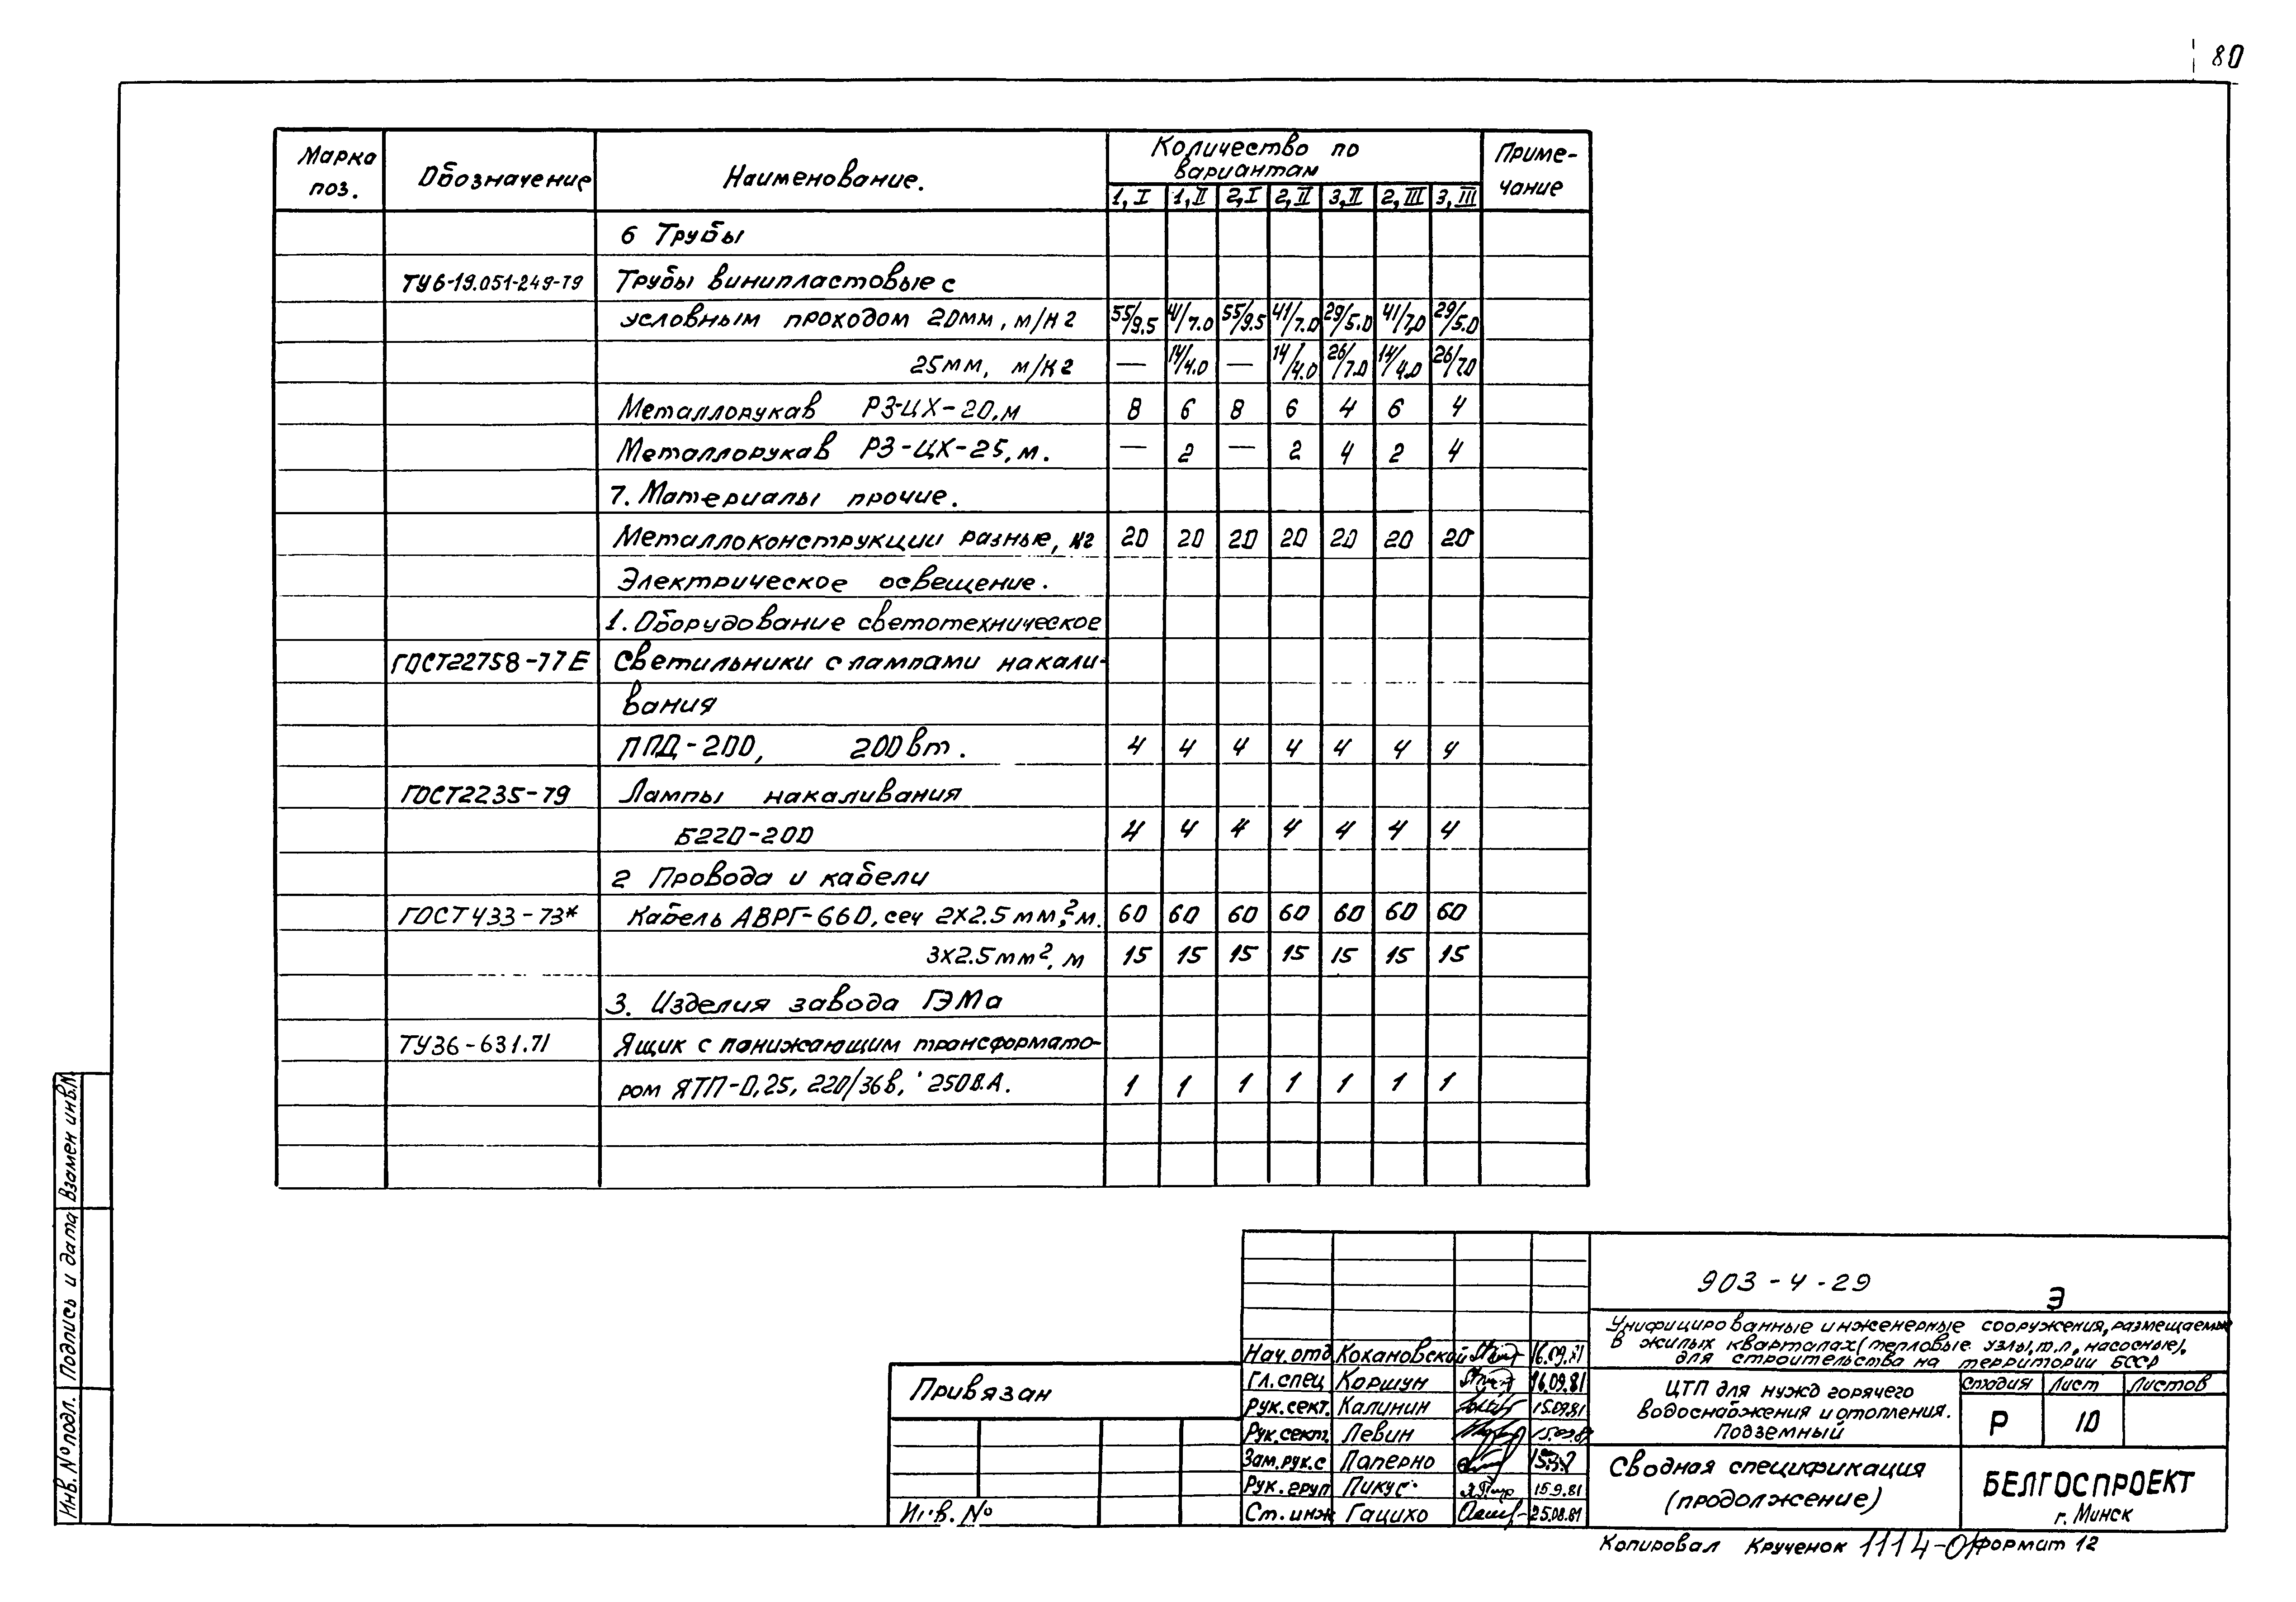 80
Марка поз. Обозначение Наименование. Количество по вариантам Приме-чание
1,I 1,II 2,I 2,II 3,II 2,III 3,III
6 Трубы
ТУ6-19.051-249-79 Трубы винипластовые с
условным проходом 20мм, м/кг 55/9.5 41/7.0 55/9.5 41/7.0 29/5.0 41/7.0 29/5.0
25мм, м/кг — 14/4.0 — 14/4.0 26/7.0 14/4.0 26/7.0
Металлорукав РЗ-ЦХ-20, м 8 6 8 6 4 6 4
Металлорукав РЗ-ЦХ-25, м. — 2 — 2 4 2 4
7. Материалы прочие.
Металлоконструкции разные, кг 20 20 20 20 20 20 20
Электрическое освещение.
1. Оборудование светотехническое
ГОСТ22758-77Е Светильники с лампами накали-
вания
ППД-200, 200вт. 4 4 4 4 4 4 4
ГОСТ2235-79 Лампы накаливания
Б220-200 4 4 4 4 4 4 4
2 Провода и кабели
ГОСТ433-73* Кабель АВРГ-660, сеч 2х2.5мм², м. 60 60 60 60 60 60 60
3х2.5мм², м 15 15 15 15 15 15 15
3. Изделия завода ГЭМа
ТУ36-631.71 Ящик с понижающим трансформато-
ром ЯТП-0,25, 220/36в, 250В.А. 1 1 1 1 1 1 1
Взамен инв.№
Подпись и дата
Инв. № подл.
Привязан
Инв. №
Нач.отд Кохановский 16.09.81
Гл.спец Коршун 16.09.81
Рук.сект. Калинин 15.09.81
Рук.сект. Левин 15.09.81
Зам.рук.с Паперно
Рук.груп Пикус 15.9.81
Ст.инж Гацихо 25.08.81
903-4-29 Э
Унифицированные инженерные сооружения, размещаемые
в жилых кварталах (тепловые узлы, т.п, насосные),
для строительства на территории БССР
ЦТП для нужд горячего
водоснабжения и отопления.
Подземный
Стадия Лист Листов
Р 10
Сводная спецификация
(продолжение)
БЕЛГОСПРОЕКТ
г. Минск
Копировал Крученок 1114-01 Формат 12